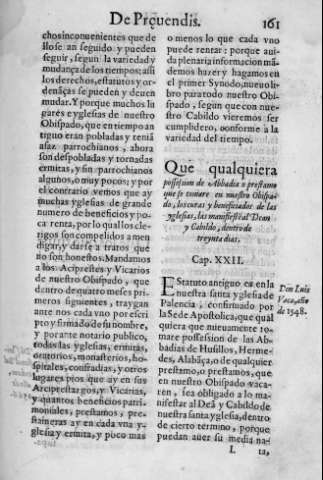 De Prçuendis.
161
chos inconuenientes que de
llo se an seguido y pueden
seguir, segun la variedad y
mudança de los tiempos: assi
los derechos, estatutos y or-
denãças se pueden y deuen
mudar. Y porque muchos lu
gares e yglesias de nuestro
Obispado, que en tiempo an
tiguo eran pobladas y tenia
asaz parrochianos, ahora
son despobladas y tornadas
ermitas, y sin parrochianos
algunos, o muy pocos: y por
el contrario vemos que ay
muchas yglesias de grande
numero de beneficios y po-
ca renta, por lo qual los cle-
rigos son compelidos a men
digar, y darse a tratos que
no son honestos. Mandamos
a los Aciprestes y Vicarios
de nuestro Obispado, que
dentro de quatro meses pri-
meros siguientes, traygan
ante nos cada vno por escri
pto y firmado de su nombre,
y por ante notario publico,
todas las yglesias, ermitas,
oratorios, monasterios, ho-
spitales, confradias, y otros
lugares pios que ay en sus
Arciprestazgos, y Vicarias,
y quantos beneficios patri-
moniales, prestamos, pre-
staineras ay en cada vna y-
glesia y ermita, y poco mas
o menos lo que cada vno
puede rentar: porque aui-
da plenaria informacion mã-
demos hazer y hagamos en
el primer Synodo, nueuo li-
bro para todo nuestro Obi-
spado, segun que con nue-
stro Cabildo vieremos ser
cumplidero, conforme a la
variedad del tiempo.
Que qualquiera
possession de Abbadia o prestamo
que se tomare en nuestro Obispa-
do, los curas y beneficiados de las
yglesias, las manifiestẽ al Dean
y Cabildo, dentro de
treynta dias.
Cap. XXII.
EStatuto antiguo es en la
nuestra santa yglesia de
Palencia, confirmado por
la Sede Apostolica, que qual
quiera que nueuamente ro-
mare possession de las Ab-
badias de Husillos, Herme-
des, Alabãça, o de qualquier
prestamo, o prestamos, que
en nuestro Obispado vaca-
ren, sea obligado a lo ma-
nifestar al Deã y Cabildo de
nuestra santa yglesia, dentro
de cierto termino, porque
puedan auer su media na-
Don Luis
Vaca, año
de 1548.
L
ta,